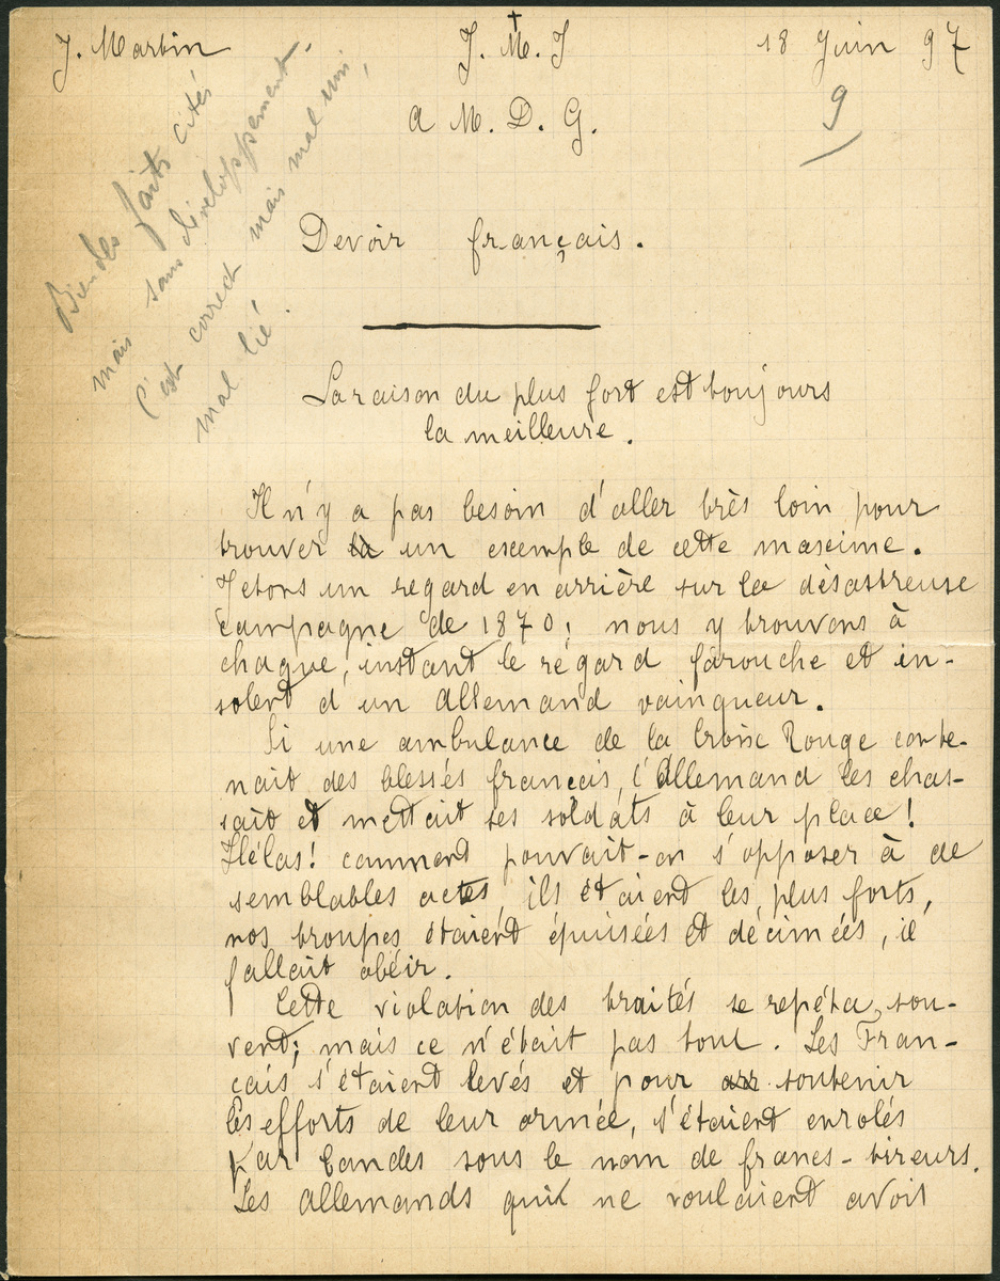 J. Martin
J. M. J
18 Juin 97
A M. D. G.
9
Bien des faits cités
mais sans développement.
C'est correct mais mal uni,
mal lié.
Devoir français.
La raison du plus fort est toujours
la meilleure.
Il n'y a pas besoin d'aller très loin pour
trouver un exemple de cette maxime.
Jetons un regard en arrière sur la désastreuse
campagne de 1870; nous y trouvons à
chaque instant le régard farouche et in-
solent d'un Allemand vainqueur.
Si une ambulance de la Croix Rouge conte-
nait des blessés français, l'Allemand les chas-
sait et mettait ses soldats à leur place!
Hélas! comment pouvait-on s'opposer à de
semblables actes, ils étaient les plus forts,
nos troupes étaient épuisées et décimées, il
fallait obéir.
Cette violation des traités se repéta sou-
vent; mais ce n'était pas tout. Les Fran-
çais s'étaient levés et pour arr soutenir
les efforts de leur armée, s'étaient enrolés
par bandes sous le nom de francs-tireurs.
Les allemands qui ne voulaient avoir